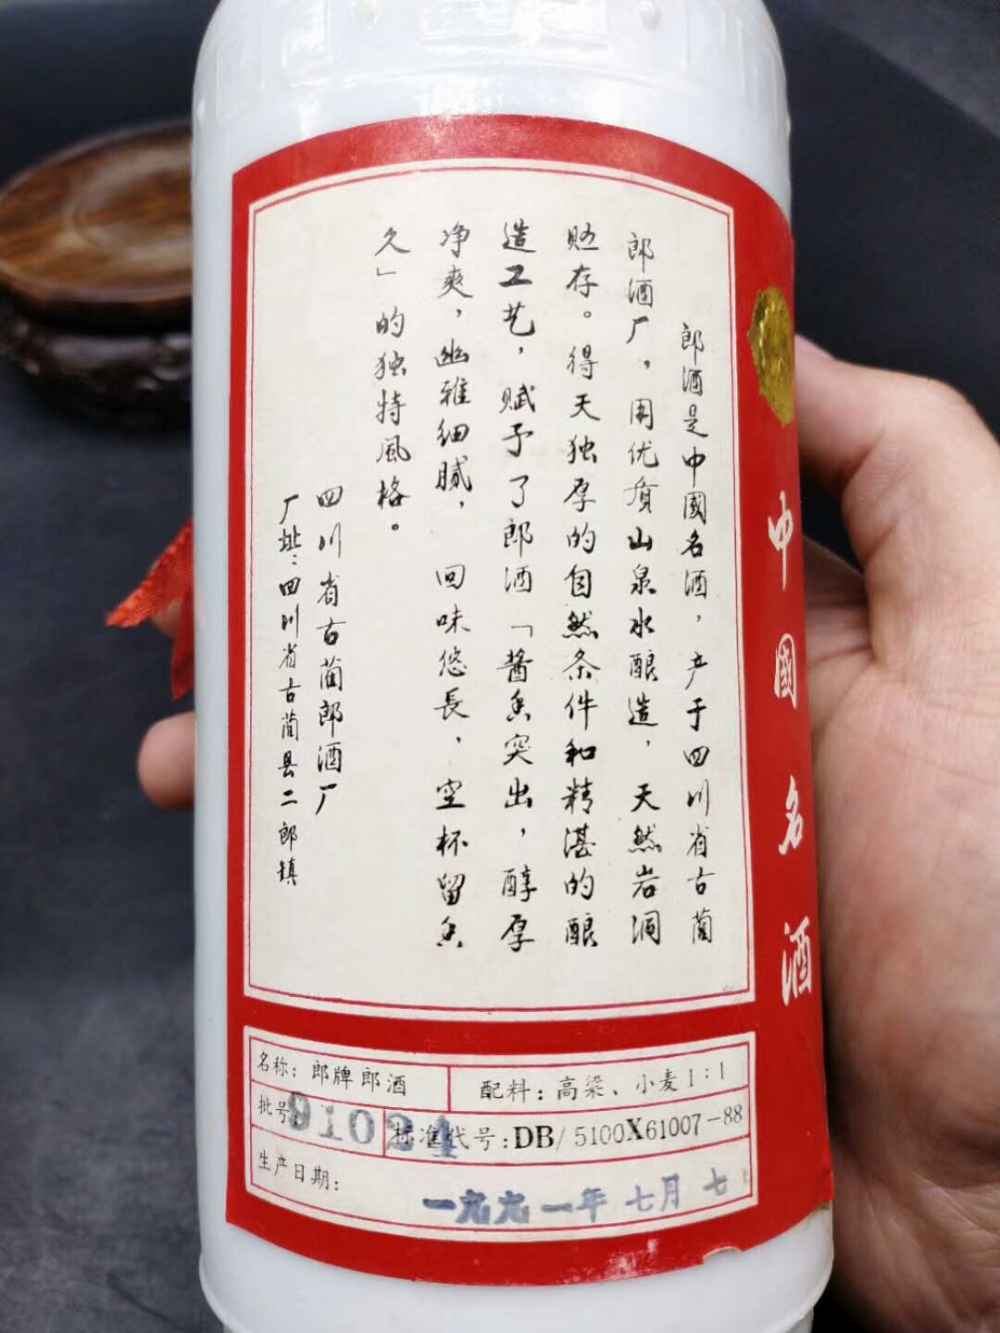 郎酒是中國名酒，产于四川省古蔺
郎酒厂，用优质山泉水酿造，天然岩洞
贮存。得天独厚的自然条件和精湛的酿
造工艺，赋予了郎酒「酱香突出，醇厚
净爽，幽雅细腻，回味悠長，空杯留香
久」的独特風格。
四川省古蔺郎酒厂
厂址：四川省古蔺县二郎镇
中國名酒
名称：郎牌郎酒
配料：高粱、小麦1：1
批号：
标准代号：DB/5100X61007-88
生产日期：
一九九一年七月七